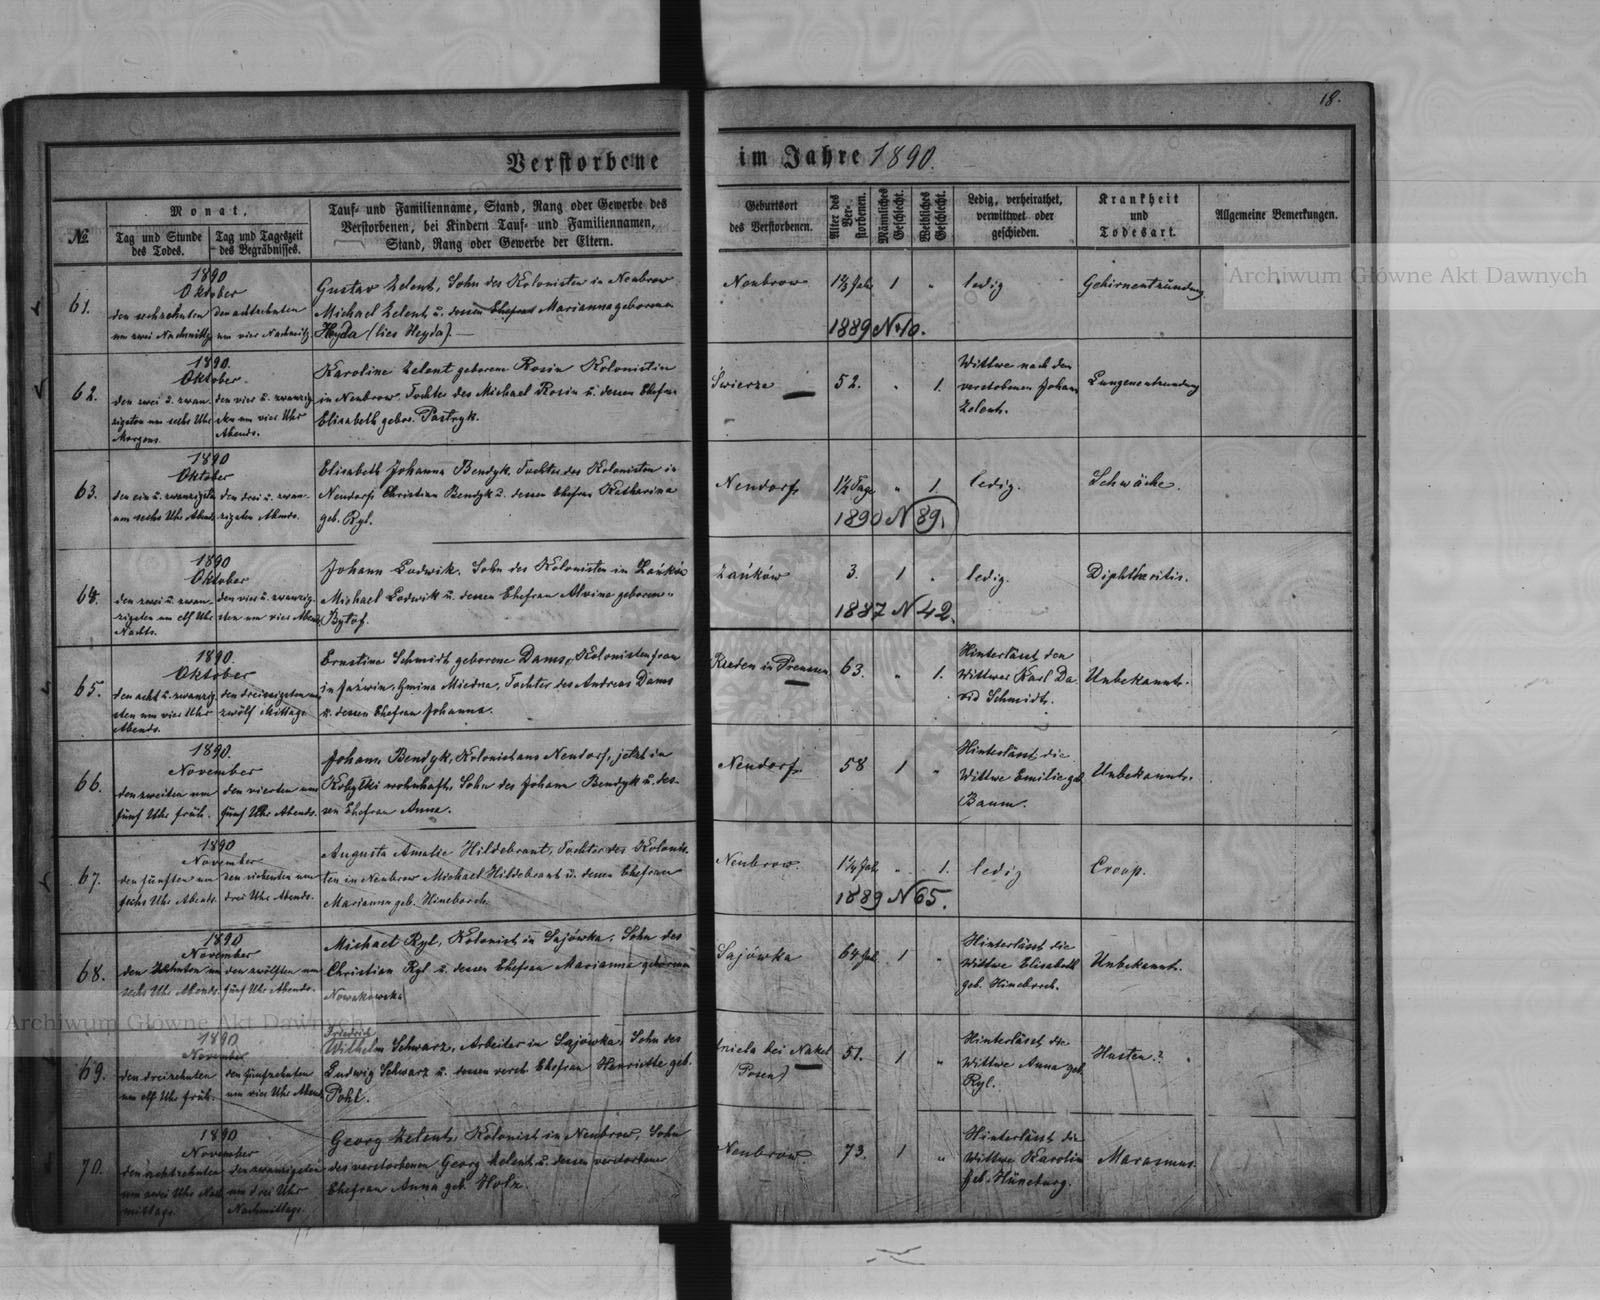 18.
Verstorbene im Jahre 1890.
№
Monat,
Tag und Stunde des Todes.
Tag und Tageszeit des Begräbnisses.
Tauf- und Familienname, Stand, Rang oder Gewerbe des
Verstorbenen, bei Kindern Tauf- und Familiennamen,
Stand, Rang oder Gewerbe der Eltern.
Geburtsort
des Verstorbenen.
Alter des Ver-storbenen.
Männliches Geschlecht.
Weibliches Geschlecht.
Ledig, verheirathet,
verwittwet oder
geschieden.
Krankheit
und
Todesart.
Allgemeine Bemerkungen.
61.
1890
Oktober
den sechzehnten
um zwei Nachmittg
den achtzehnten
um vier Nachmitg
Gustav Zelent, Sohn des Kolonisten in Neubrow
Michael Zelent u. dessen Ehefrau Marianna geborena
Heyda (lies Heyda).
Neubrow
1
"
ledig
Gehirnentzündung
1889 N 40.
62.
1890.
Oktober
den zwei u. zwan
zigsten um sechs Uhr
Morgens.
den vier u. zwanzig
sten um vier Uhr
Abends.
Karoline Zelent geboren Rosin Kolonistin
in Neubrow Tochter des Michael Rosin u. dessen Ehefrau
Elisabeth gebor. Pastryk.
Świerze
52.
"
1.
Wittwe nach den
verstobenen Johann
Zelent.
Lungenentzundung
63.
1890
Oktober
den ein u. zwanzigsten
um sechs Uhr Abends
den drei u. zwan
zigsten Abends.
Elisabeth Johanna Bendyk. Tochter des Kolonisten in
Neudorf Christian Bendyk u. dessen Ehefrau Katharina
geb. Ryl.
Neudorf
1½ Tage
"
1.
ledig.
Schwäche.
1890 N 89.
64.
1890
Oktober
den zwei u. zwan
zigsten um elf Uhr
Nachts.
den vier u. zwanzig
sten um vier Abend
Johann Ludwik. Sohn des Kolonisten in Zańków
Michael Ludwik u. dessen Ehefrau Alvina geboren
Bytof.
Zańków
3.
1
"
ledig.
Diphtheritis.
1887 N 42.
65.
1890.
Oktober
den acht u. zwanzig
sten um vier Uhr
Abends.
den dreissigsten um
zwölf Mittags
Ernstine Schmidt geborene Dams, Kolonistenfrau
in Jaźwin, Gmina Miedna, Tochter des Andreas Dams
u. dessen Ehefrau Johanna.
in Preussen
63.
"
1.
Hinterlässt den
Wittwer Karl Da
vid Schmidt.
Unbekannt.
66.
1890.
November
den zweiten um
fünf Uhr früh.
den vierten um
fünf Uhr Abends.
Johann Bendyk, Kolonist aus Neudorf, jetzt in
Kobyłki wohnhaft, Sohn des Johann Bendyk u. des-
sen Ehefrau Anna.
Neudorf
58
1
"
Hinterlässt die
Wittwe Emilie geb
Baum.
Unbekannt.
67.
1890
November
den fünften um
sechs Uhr Abends
den siebenten um
drei Uhr Abends.
Augusta Amalie Hildebrant, Tochter des Kolonis
ten in Neubrow Michael Hildebrant u. dessen Ehefrau
Marianna geb. Hineborch.
Neubrow
"
1.
ledig
Croop.
1889 N 65.
68.
1890
November
den Zehnten um
sechs Uhr Abends.
den zwölften um
fünf Uhr Abends.
Michael Ryl, Kolonist in Sajówka, Sohn des
Christian Ryl u. dessen Ehefrau Marianna geboren
Nowakowska
Sajówka
64 Jah
1
"
Hinterlässt die
Wittwe Elisabeth
geb. Hineborch.
Unbekannt.
69.
1890
November
den dreizehnten
um elf Uhr früh.
den fünfzehnten
um vier Uhr Abend
Friedrich
Wilhelm Schwarz, Arbeiter in Sajówka, Sohn des
Ludwig Schwarz u. dessen verst Ehefrau Henriette geb.
Pohl.
bei Nakel
(Posen)
51.
1
"
Hinterlässt die
Wittwe Anna geb
Ryl.
Husten?
70.
1890
November
den achtzehnten
um zwei Uhr Nach
mittags.
den zwanzigsten
um drei Uhr
Nachmittags.
Georg Zelent, Kolonist in Neubrow, Sohn
des verstorbenen Georg Zelent u. dessen verstorbene
Ehefrau Anna geb. Holz.
Neubrow
73.
1
"
Hinterlässt die
Wittwe Karolin
geb. Hüneburg.
Marasmus.
Archiwum Główne Akt Dawnych
Archiwum Główne Akt Dawnych